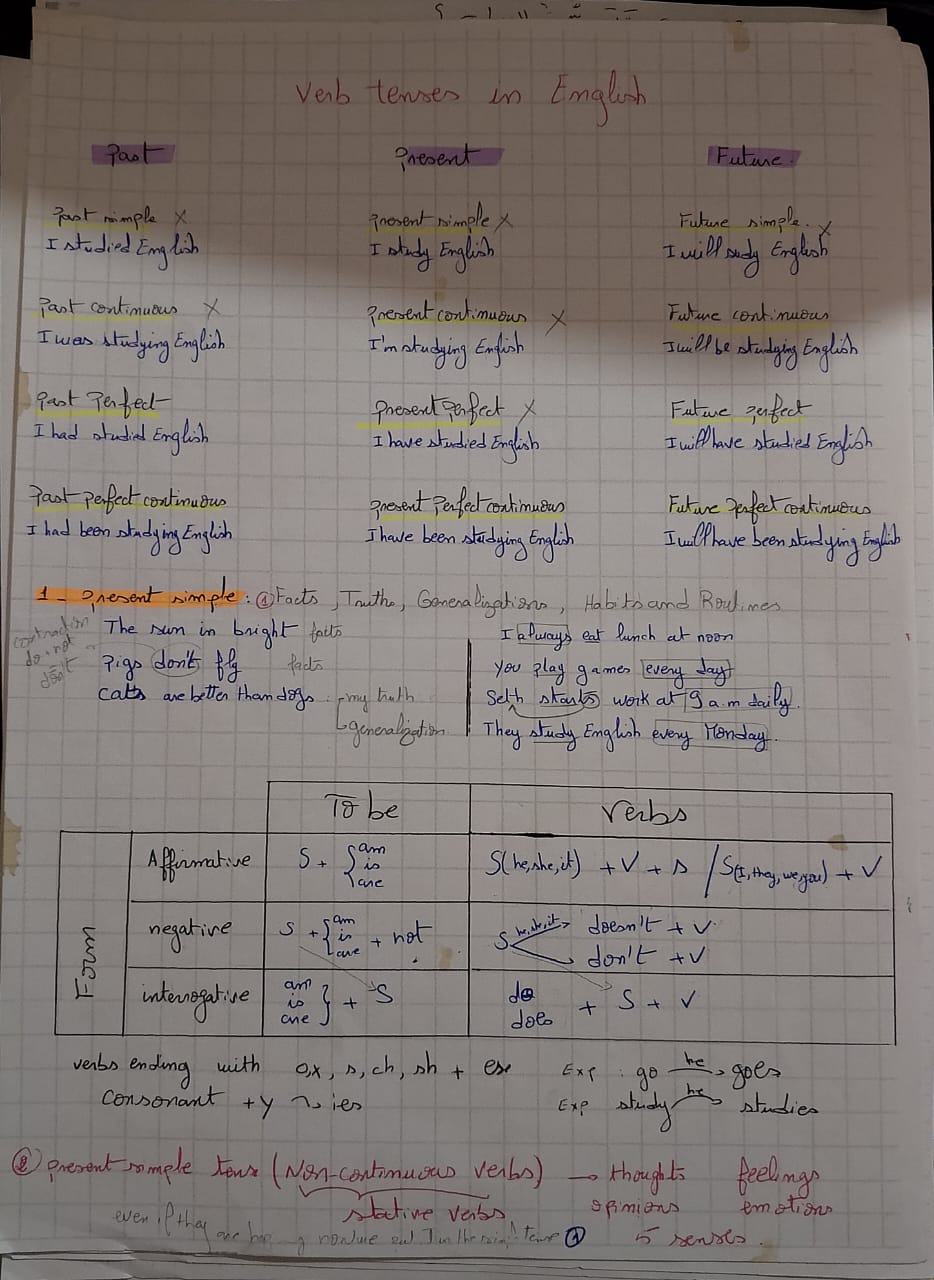 Verb tenses in English
Past Present Future.
Past simple X Present simple X Future simple. X
I studied English I study English I will sudy English
Past continuous X Present continuous X Future continuous
I was studying English I'm studying English I will be studying English
Past Perfect Present Perfect X Future perfect
I had studied English I have studied English I will have studied English
Past perfect continuous Present Perfect continuous Future Perfect continuous
I had been studying English I have been studying English I will have been studying English
1 - present simple : ① Facts, Truths, Generalizations, Habits and Routines
contraction
do not
don't
The sun in bright facts
Pigs don't fly facts
Cats are better than dogs : my truth
generalization
I always eat lunch at noon
you play games every day
Seth starts work at 9 a.m daily.
They study English every Monday.
To be Verbs
Form
Affirmative S + { am is are S(he, she, it) + V + s / S(I, they, we, you) + V
negative S + { am is are + not S he, she, it → doesn't + V
don't + V
interrogative am is are } + S do does + S + V
verbs ending with o, x, s, ch, sh + es Exp : go he → goes
consonant + y → ies Exp study he → studies
② present simple tense (Non-continuous verbs) → thoughts feelings
stative verbs opinions emotions
even if they are now tense ① 5 senses.